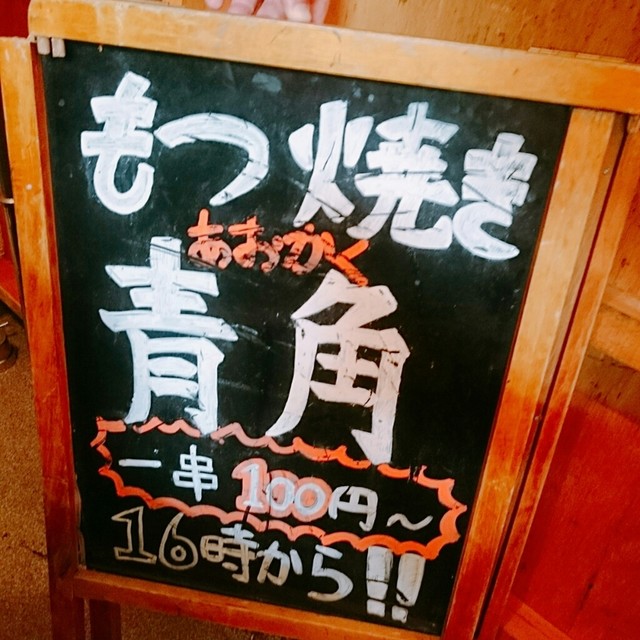 もつ焼き
あおかく
青角
一串100円～
16時から!!